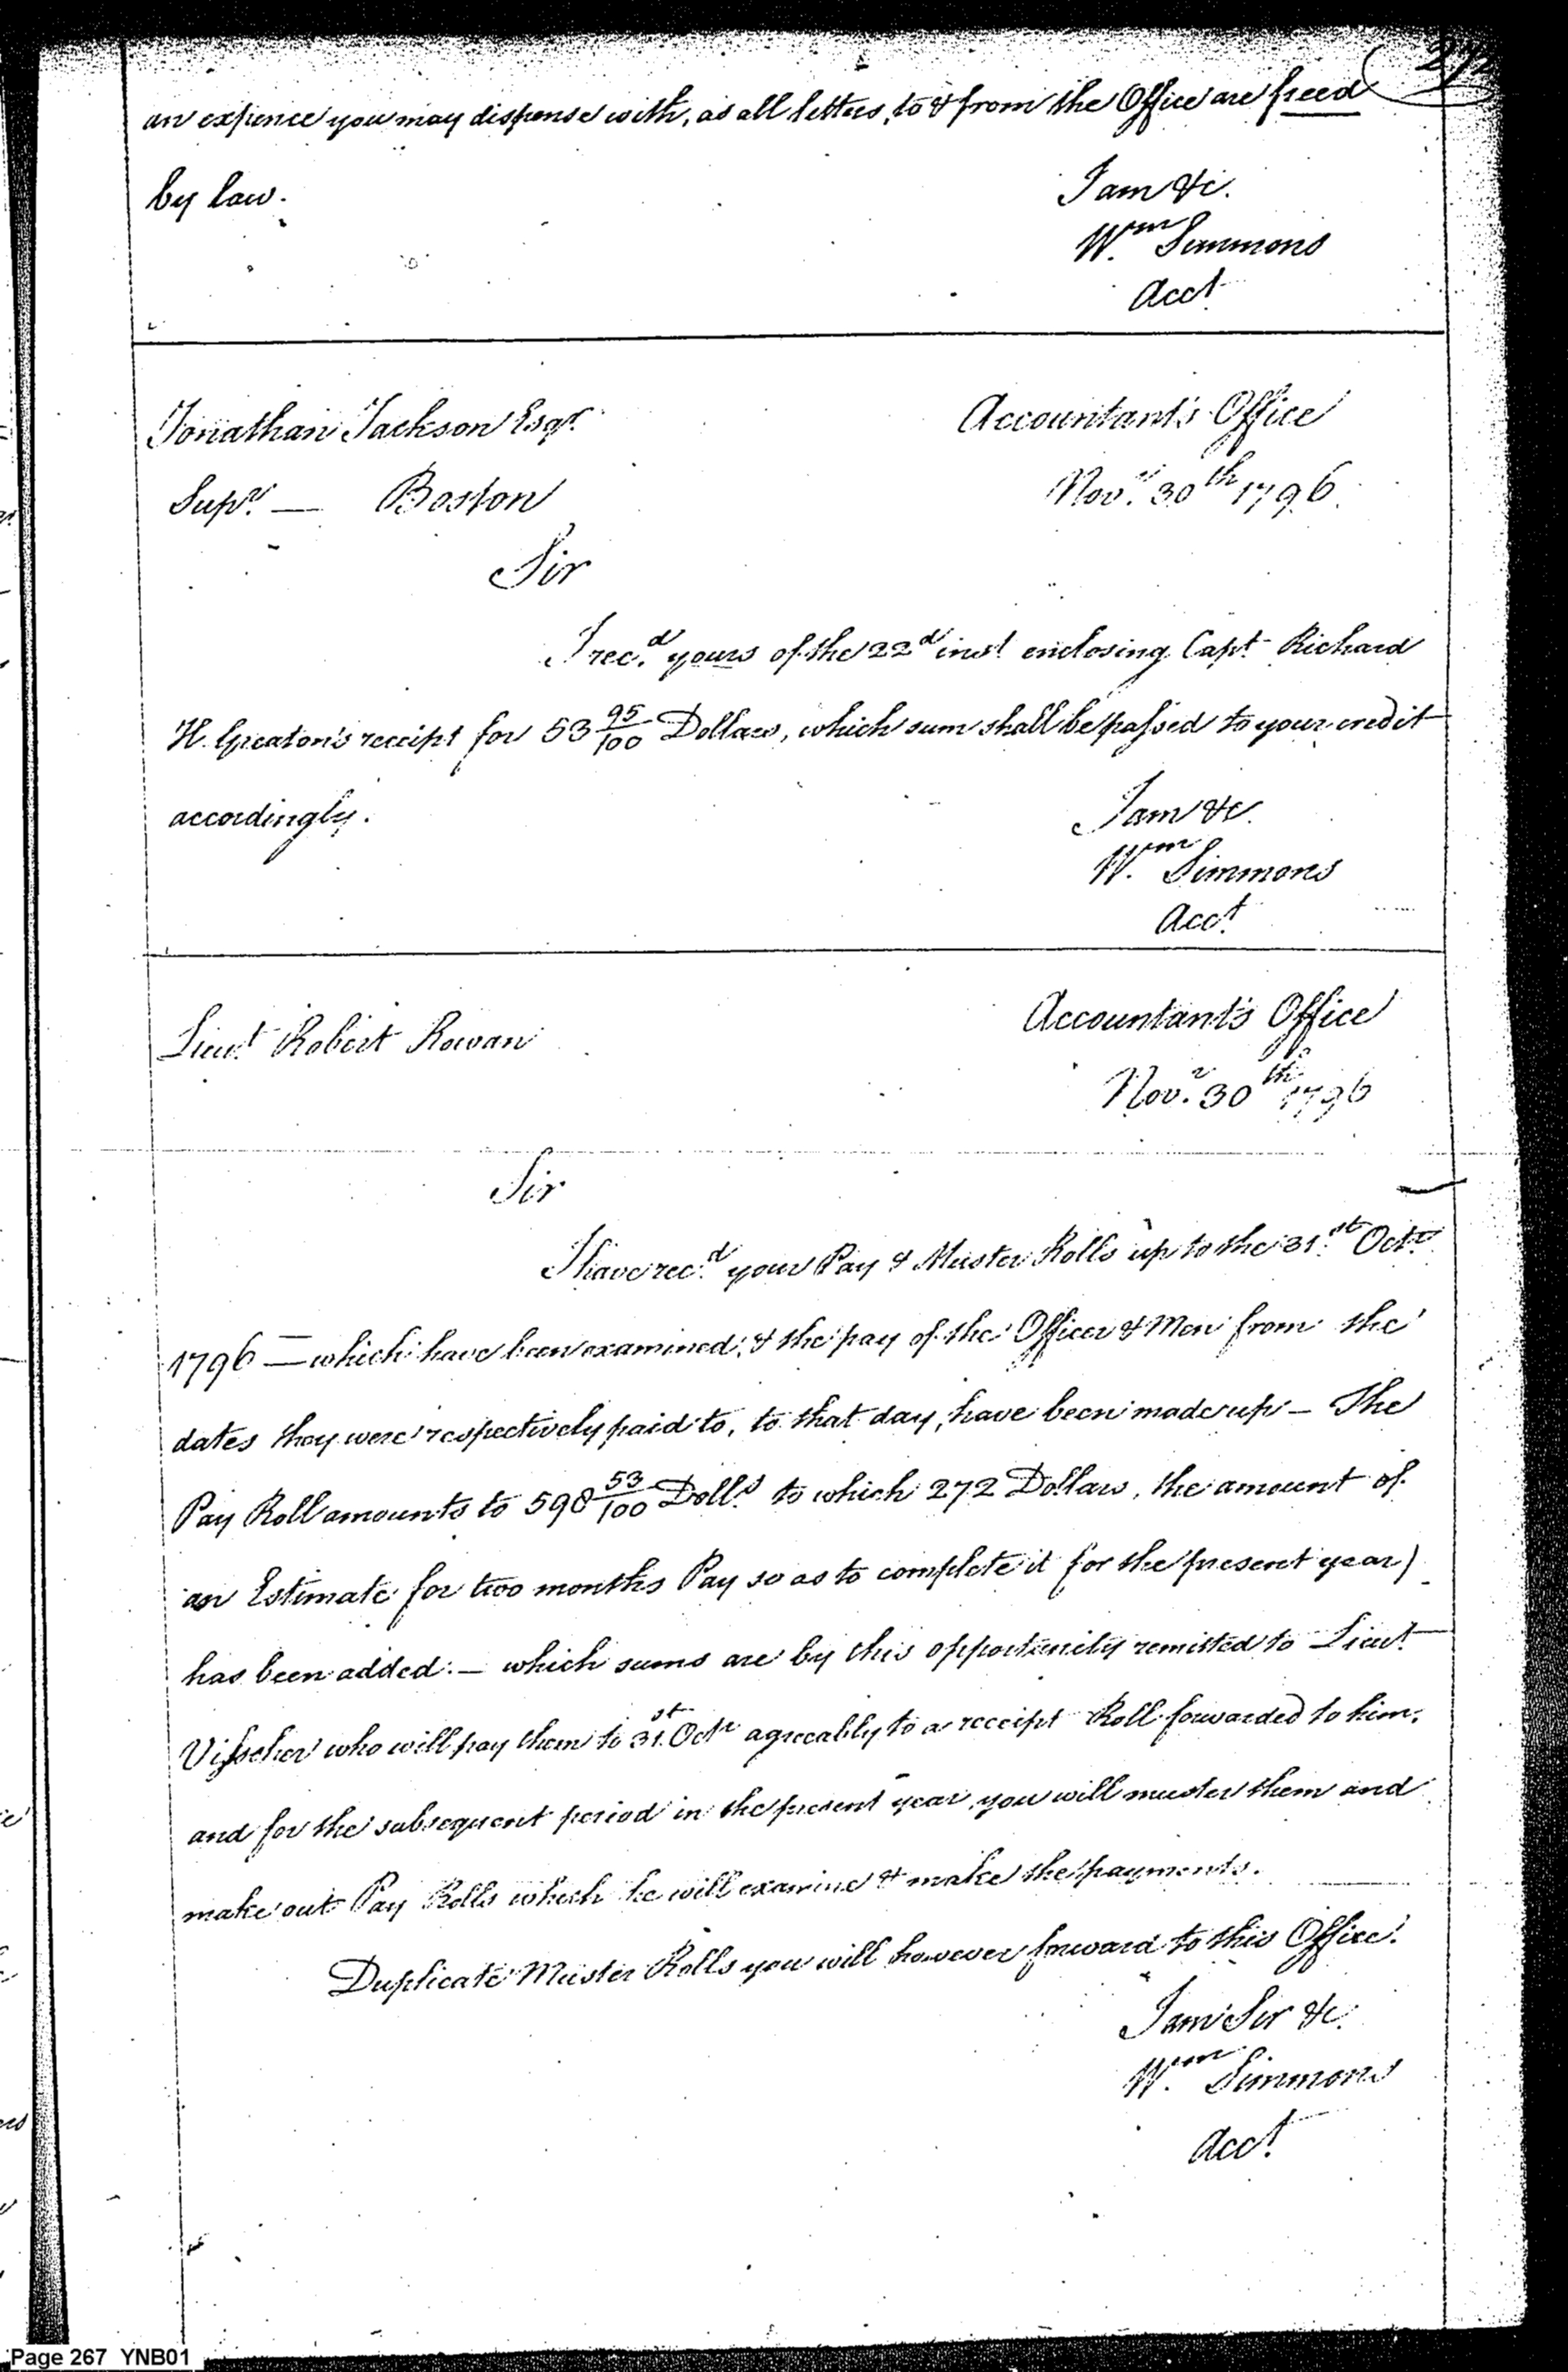 an expence you may dispense with, as all letters, to & from the Office are freed
by law.
I am &c.
Wm Simmons
Acct
Jonathan Jackson Esqr.
Accountant's Office
Supr. — Boston
Novr. 30th 1796.
Sir
I rec.d yours of the 22d inst enclosing Capt Richard
H. Greaton's receipt for 53 95/100 Dollars, which sum shall be passed to your credit
accordingly.
I am &c.
Wm. Simmons
Acct
Accountant's Office
Lieut Robert Rowan
Novr. 30th 1796
Sir
I have rec.d your Pay & Muster Rolls up to the 31.st Octr
1796 — which have been examined, & the pay of the Officer & Men from the
dates they were respectively paid to, to that day, have been made up — The
Pay Roll amounts to 598 53/100 Dolls to which 272 Dollars, the amount of
an Estimate for two months Pay so as to complete it for the present year)
has been added: — which sums are by this opportunity remitted to Lieut
Visscher who will pay them to 31st. Octr agreeably to a receipt Roll forwarded to him,
and for the subsequent period in the present year, you will muster them and
make out Pay Rolls which he will examine & make the payments.
Duplicate Muster Rolls you will however forward to this Office.
I am Sir &c.
Wm. Simmons
Acct
Page 267 YNB01